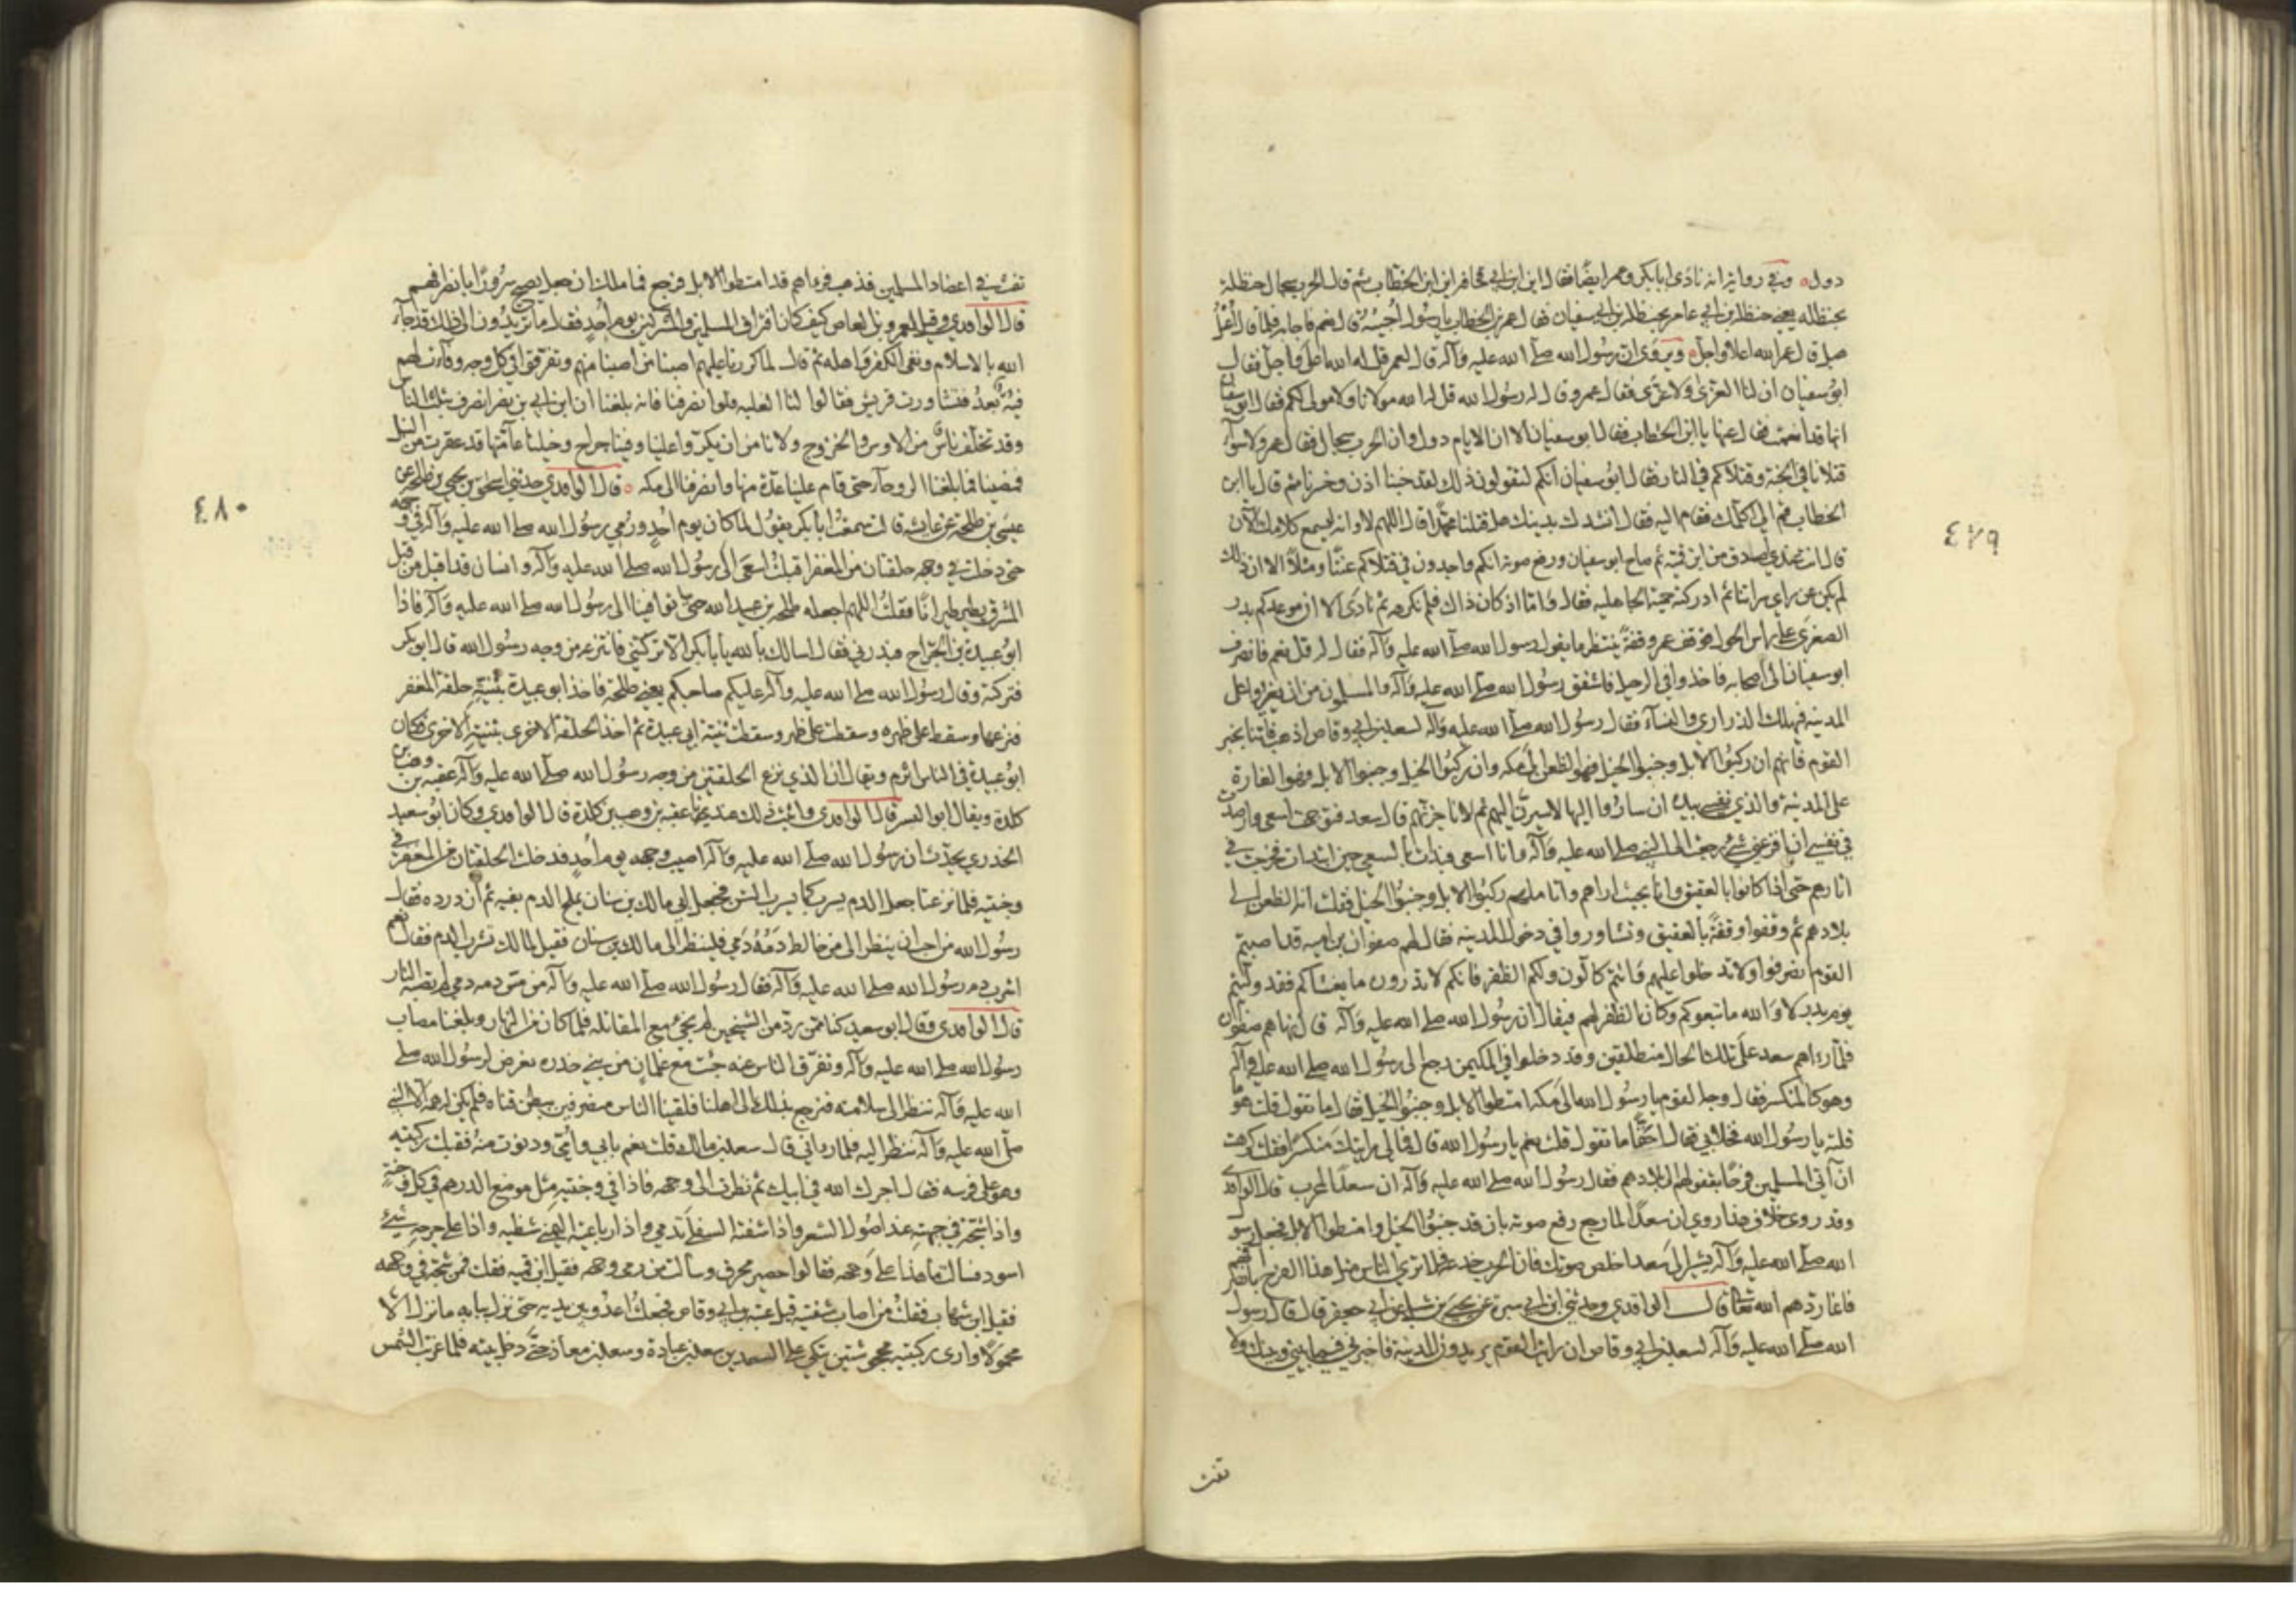 ٤٧٩
دول وفي رواية انه نادى ابا بكر وعمر ايضا فقال اين ابن ابي قحافه اين ابن الخطاب ثم قال الحرب سجال حنظلة
بحنظله يعني حنظلة بن ابي عامر بحنظلة بن ابي سفيان فقال عمر بن الخطاب يا رسول اجيبه قال نعم فاجابه فلما قال اُعْلُ
هبل قال عمر الله اعلا واجل ويروى ان رسول الله صلى الله عليه وآله قال لعمر قل له الله اعلى واجل فقال
ابو سفيان ان لنا العزى ولا عزى فقال عمر وقال له رسول الله قل له الله مولانا ولا مولى لكم فقال ابو سفيان
انها قد انعمت فعال عنها يا ابن الخطاب فقال ابو سفيان الا ان الايام دول وان الحرب سجال فقال عمر ولا سوآء
قتلانا في الجنة وقتلاكم في النار فقال ابو سفيان انكم لتقولون ذلك لقد خبنا اذن وخسرنا ثم قال يا ابن
الخطاب قم الي اكلمك فقام اليه فقال انشدك بدينك هل قتلنا محمدا قال اللهم لا وانه ليسمع كلامك الآن
قال انت عندي اصدق من ابن قميه ثم صاح ابو سفيان ورفع صوته انكم واجدون في قتلاكم عنتا ومثلا الا ان ذلك
لم يكن عن راي سراتنا ثم ادركته حمية الجاهلية فقال واما اذ كان ذاك فلم نكرهه ثم نادى الا ان موعدكم بدر
الصغرى على راس الحول فوقف عمر وقفة ينتظر ما يقول رسول الله صلى الله عليه وآله فقال له قل نعم فانصرف
ابو سفيان الى اصحابه فاخذوا في الرحيل فاشفق رسول الله صلى الله عليه وآله والمسلمون من ان يغيروا على
المدينة فيهلك الذراري والنسآء فقال رسول الله صلى الله عليه وآله لسعد بن ابي وقاص اذهب فاتنا بخبر
القوم فانهم ان ركبوا الابل وجنبوا الخيل فهو الظعن الى مكه وان ركبوا الخيل وجنبوا الابل فهو الغارة
على المدينة والذي نفسي بيده ان ساروا اليها لاسيرن اليهم ثم لاناجزنهم قال سعد فتوجهت اسعى وارصدت
في نفسي ان افزعني شيء رجعت الى النبي صلى الله عليه وآله وانا اسعى فبدات بالسعي حين ابتدات فخرجت في
اثارهم حتى اذا كانوا بالعقيق وانا بحيث اراهم واتاملهم ركبوا الابل وجنبوا الخيل فقلت انه الظعن الى
بلادهم ثم وقفوا وقفة بالعقيق وتشاوروا في دخول المدينه فقال لهم صفوان بن اميه قد اصبتم
القوم انصرفوا ولا تدخلوا عليهم وانتم كالون ولكم الظفر فانكم لا تدرون ما يغشاكم فقد وليتم
يوم بدر لا والله ما تبعوكم وكان الظفر لهم فيقال ان رسول الله صلى الله عليه وآله قال نهاهم صفوان
فلما رءاهم سعد على تلك الحال منطلقين وقد دخلوا في المكيمن رجع الى رسول الله صلى الله عليه وآله
وهو كالمنكسر فقال وجه القوم يا رسول الله الى مكه امتطوا الابل وجنبوا الخيل فقال ما تقول قلت هو ما
قلته يا رسول الله فخلا بي فقال احقا ما تقول قلت نعم يا رسول الله قال فما لي رايتك منكسرا فقلت كرهت
ان آتي المسلمين فرحا بقفولهم الى بلادهم فقال رسول الله صلى الله عليه وآله ان سعدا لمجرب قال الواقدي
وقد روى خلاف هذا روي ان سعدا لما رجع رفع صوته بان قد جنبوا الخيل وامتطوا الابل فجعل رسول
الله صلى الله عليه وآله يشير الى سعد اخفض صوتك فان الحرب خدعة فلا تري الناس مثل هذا الفرح بانصرافهم
فانما ردهم الله تعالى قال الواقدي وحدثني ابن ابي سبرة عن يحيى بن شبل عن ابي جعفر قال قال رسول
الله صلى الله عليه وآله لسعد بن ابي وقاص ان رايت القوم يريدون المدينة فاخبرني فيما بيني وبينك ولا
تفت
٤٨٠
تفت في اعضاد المسلمين فذهب فرءاهم قد امتطوا الابل فرجع فما ملك ان جعل يصيح سرورا بانصرافهم
قال الواقدي وقيل لعمرو بن العاص كيف كان افتراق المسلمين والمشركين يوم أحد فقال ما تريدون الى ذلك قد جآء
الله بالاسلام ونفى الكفر واهله ثم قال لما كررنا عليهم اصبنا من اصبنا منهم وتفرقوا في كل وجه وفآءت لهم
فيئة بعد فتشاورت قريش فقالوا لنا الغلبه فلو انصرفنا فانه بلغنا ان ابن ابي انصرف بثلث الناس
وقد تخلف ناس من الاوس والخزرج ولا نامن ان يكروا علينا وفينا جراح وخيلنا عآمتها قد عقرت من النبل
فمضينا فما بلغنا الروحآء حتى قام علينا عدة منها وانصرفنا الى مكه قال الواقدي حدثني اسحق بن يحيى بن طلحه عن
عيسى بن طلحة عن عائشه قالت سمعت ابا بكر يقول لما كان يوم أحد ورُمي رسول الله صلى الله عليه وآله في وجهه
حتى دخلت في وجهه حلقتان من المغفر اقبلت اسعى الى رسول الله صلى الله عليه وآله وانسان قد اقبل من قبل
المشرق يطير طيرانا فقلت اللهم اجعله طلحة بن عبيد الله حتى توافينا الى رسول الله صلى الله عليه وآله فاذا
ابو عبيدة بن الجراح فبدرني فقال اسالك بالله يا ابا بكر الا تركتني فانتزعه من وجه رسول الله قال ابو بكر
فتركته وقال رسول الله صلى الله عليه وآله عليكم صاحبكم يعني طلحة فاخذ ابو عبيدة بثنيته حلقة المغفر
فنزعها وسقط على ظهره وسقطت ثنية ابي عبيدة ثم اخذ الحلقة الاخرى بثنيته الاخرى فكان
ابو عبيدة في الناس اثرم ويقال ان الذي نزع الحلقتين من وجه رسول الله صلى الله عليه وآله عقبه بن وهب بن
كلدة ويقال ابو اليسر قال الواقدي واثبت ذلك عندنا عقبه بن وهب بن كلدة قال الواقدي وكان ابو سعيد
الخدري يحدث ان رسول الله صلى الله عليه وآله اصيب وجهه يوم أحد فدخلت الحلقتان من المغفر في
وجنتيه فلما نزعتا جعل الدم يسرب كما يسرب الشن فجعل ابي مالك بن سنان يملج الدم بفيه ثم ازدرده فقال
رسول الله من احب ان ينظر الى من خالط دمه دمي فلينظر الى مالك بن سنان فقيل لمالك تشرب الدم فقال نعم
اشرب دم رسول الله صلى الله عليه وآله فقال رسول الله صلى الله عليه وآله من مس دمه دمي لم تصبه النار
قال الواقدي وقال ابو سعيد كنا ممن رد من الشيخين لم نجئ مع المقاتلة فلما كان من النهار وبلغنا مصاب
رسول الله صلى الله عليه وآله وتفرق الناس عنه جئت مع غلمان من بني خدره نعرض لرسول الله صلى
الله عليه وآله ننظر الى سلامته فنرجع بذلك الى اهلنا فلقينا الناس منصرفين ببطن قناه فلم يكن لنا همة الا النبي
صلى الله عليه وآله ننظر اليه فلما رءاني قال سعد بن مالك قلت نعم بابي وأمي ودنوت منه فقبلت ركبته
وهو على فرسه فقال اجرك الله في ابيك ثم نظرت الى وجهه فاذا في وجنتيه مثل موضع الدرهم في كل وجنة
واذا شجة في جبهته عند اصول الشعر واذا شفته السفلى تدمي واذا رباعيته اليمنى شظيه واذا على جرحه شيء
اسود فسالت ما هذا على وجهه فقالوا حصير محرق وسالت من رمى وجهه فقيل ابن قميه فقلت فمن شجه في وجهه
فقيل ابن شهاب فقلت من اصاب شفته قيل عتبه بن ابي وقاص فجعلت اعدو بين يديه حتى نزل ببابه ما نزل الا
محمولا وارى ركبتيه مجحوشتين يتكي على السعدين سعد بن عبادة وسعد بن معاذ حتى دخل بيته فلما غربت الشمس